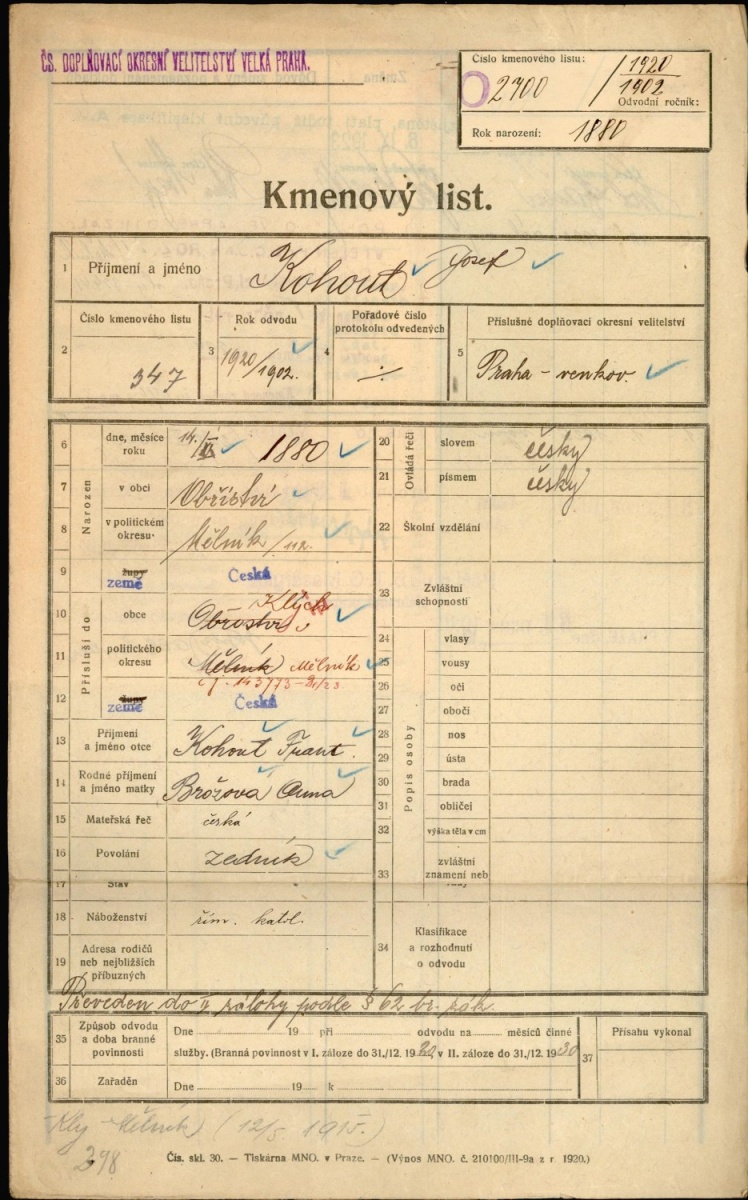 ČS. DOPLŇOVACÍ OKRESNÍ VELITELSTVÍ VELKÁ PRAHA.
Číslo kmenového listu:
2700 / 1920
1902
Odvodní ročník:
Rok narození: 1880
Kmenový list.
1 Příjmení a jméno Kohout Josef
2 Číslo kmenového listu 347
3 Rok odvodu 1920/1902.
4 Pořadové číslo protokolu odvedených
5 Příslušné doplňovací okresní velitelství Praha - venkov.
Narozen
6 dne, měsíce roku 14. 1880
7 v obci Obříství
8 v politickém okresu Mělník
9 župy země Česká
Přísluší do
10 obce Obříství
11 politického okresu Mělník Mělník
12 župy země Česká
13 Příjmení a jméno otce Kohout Frant.
14 Rodné příjmení a jméno matky Brožová Anna
15 Mateřská řeč česká
16 Povolání zedník
17 Stav
18 Náboženství řím. katol.
19 Adresa rodičů neb nejbližších příbuzných
Ovládá řeči
20 slovem česky
21 písmem česky
22 Školní vzdělání
23 Zvláštní schopnosti
Popis osoby
24 vlasy
25 vousy
26 oči
27 obočí
28 nos
29 ústa
30 brada
31 obličej
32 výška těla v cm
33 zvláštní znamení neb
34 Klasifikace a rozhodnutí o odvodu
Převeden do II. zálohy podle § 62 br. zák.
35 Způsob odvodu a doba branné povinnosti
Dne 19 při odvodu na měsíců činné
služby. (Branná povinnost v I. záloze do 31./12. 1920, v II. záloze do 31./12. 1930
36 Zařaděn Dne 19 k
37 Přísahu vykonal
Kly - Mělník (12/5 1915.)
298
Čís. skl. 30. — Tiskárna MNO. v Praze. — (Výnos MNO. č. 210100/III-9a z r. 1920.)